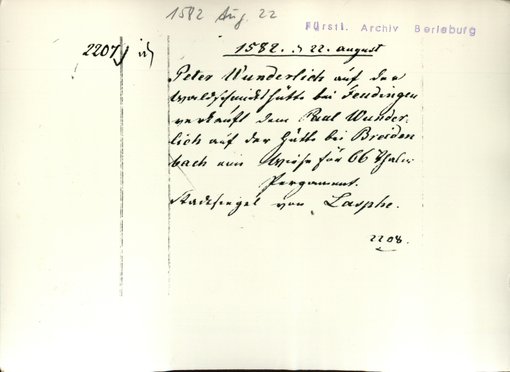 1582 Aug. 22
Fürstl. Archiv Berleburg
2207
1582. 22. august
Peter Wunderlich auf der
Waldschmidthütte bei Feudingen
verkauft dem Paul Wunder-
lich auf der Hütte bei Breiden
bach ein Wiese für 66 Thaler
Pergament.
Stadtsiegel von Laasphe.
2208.